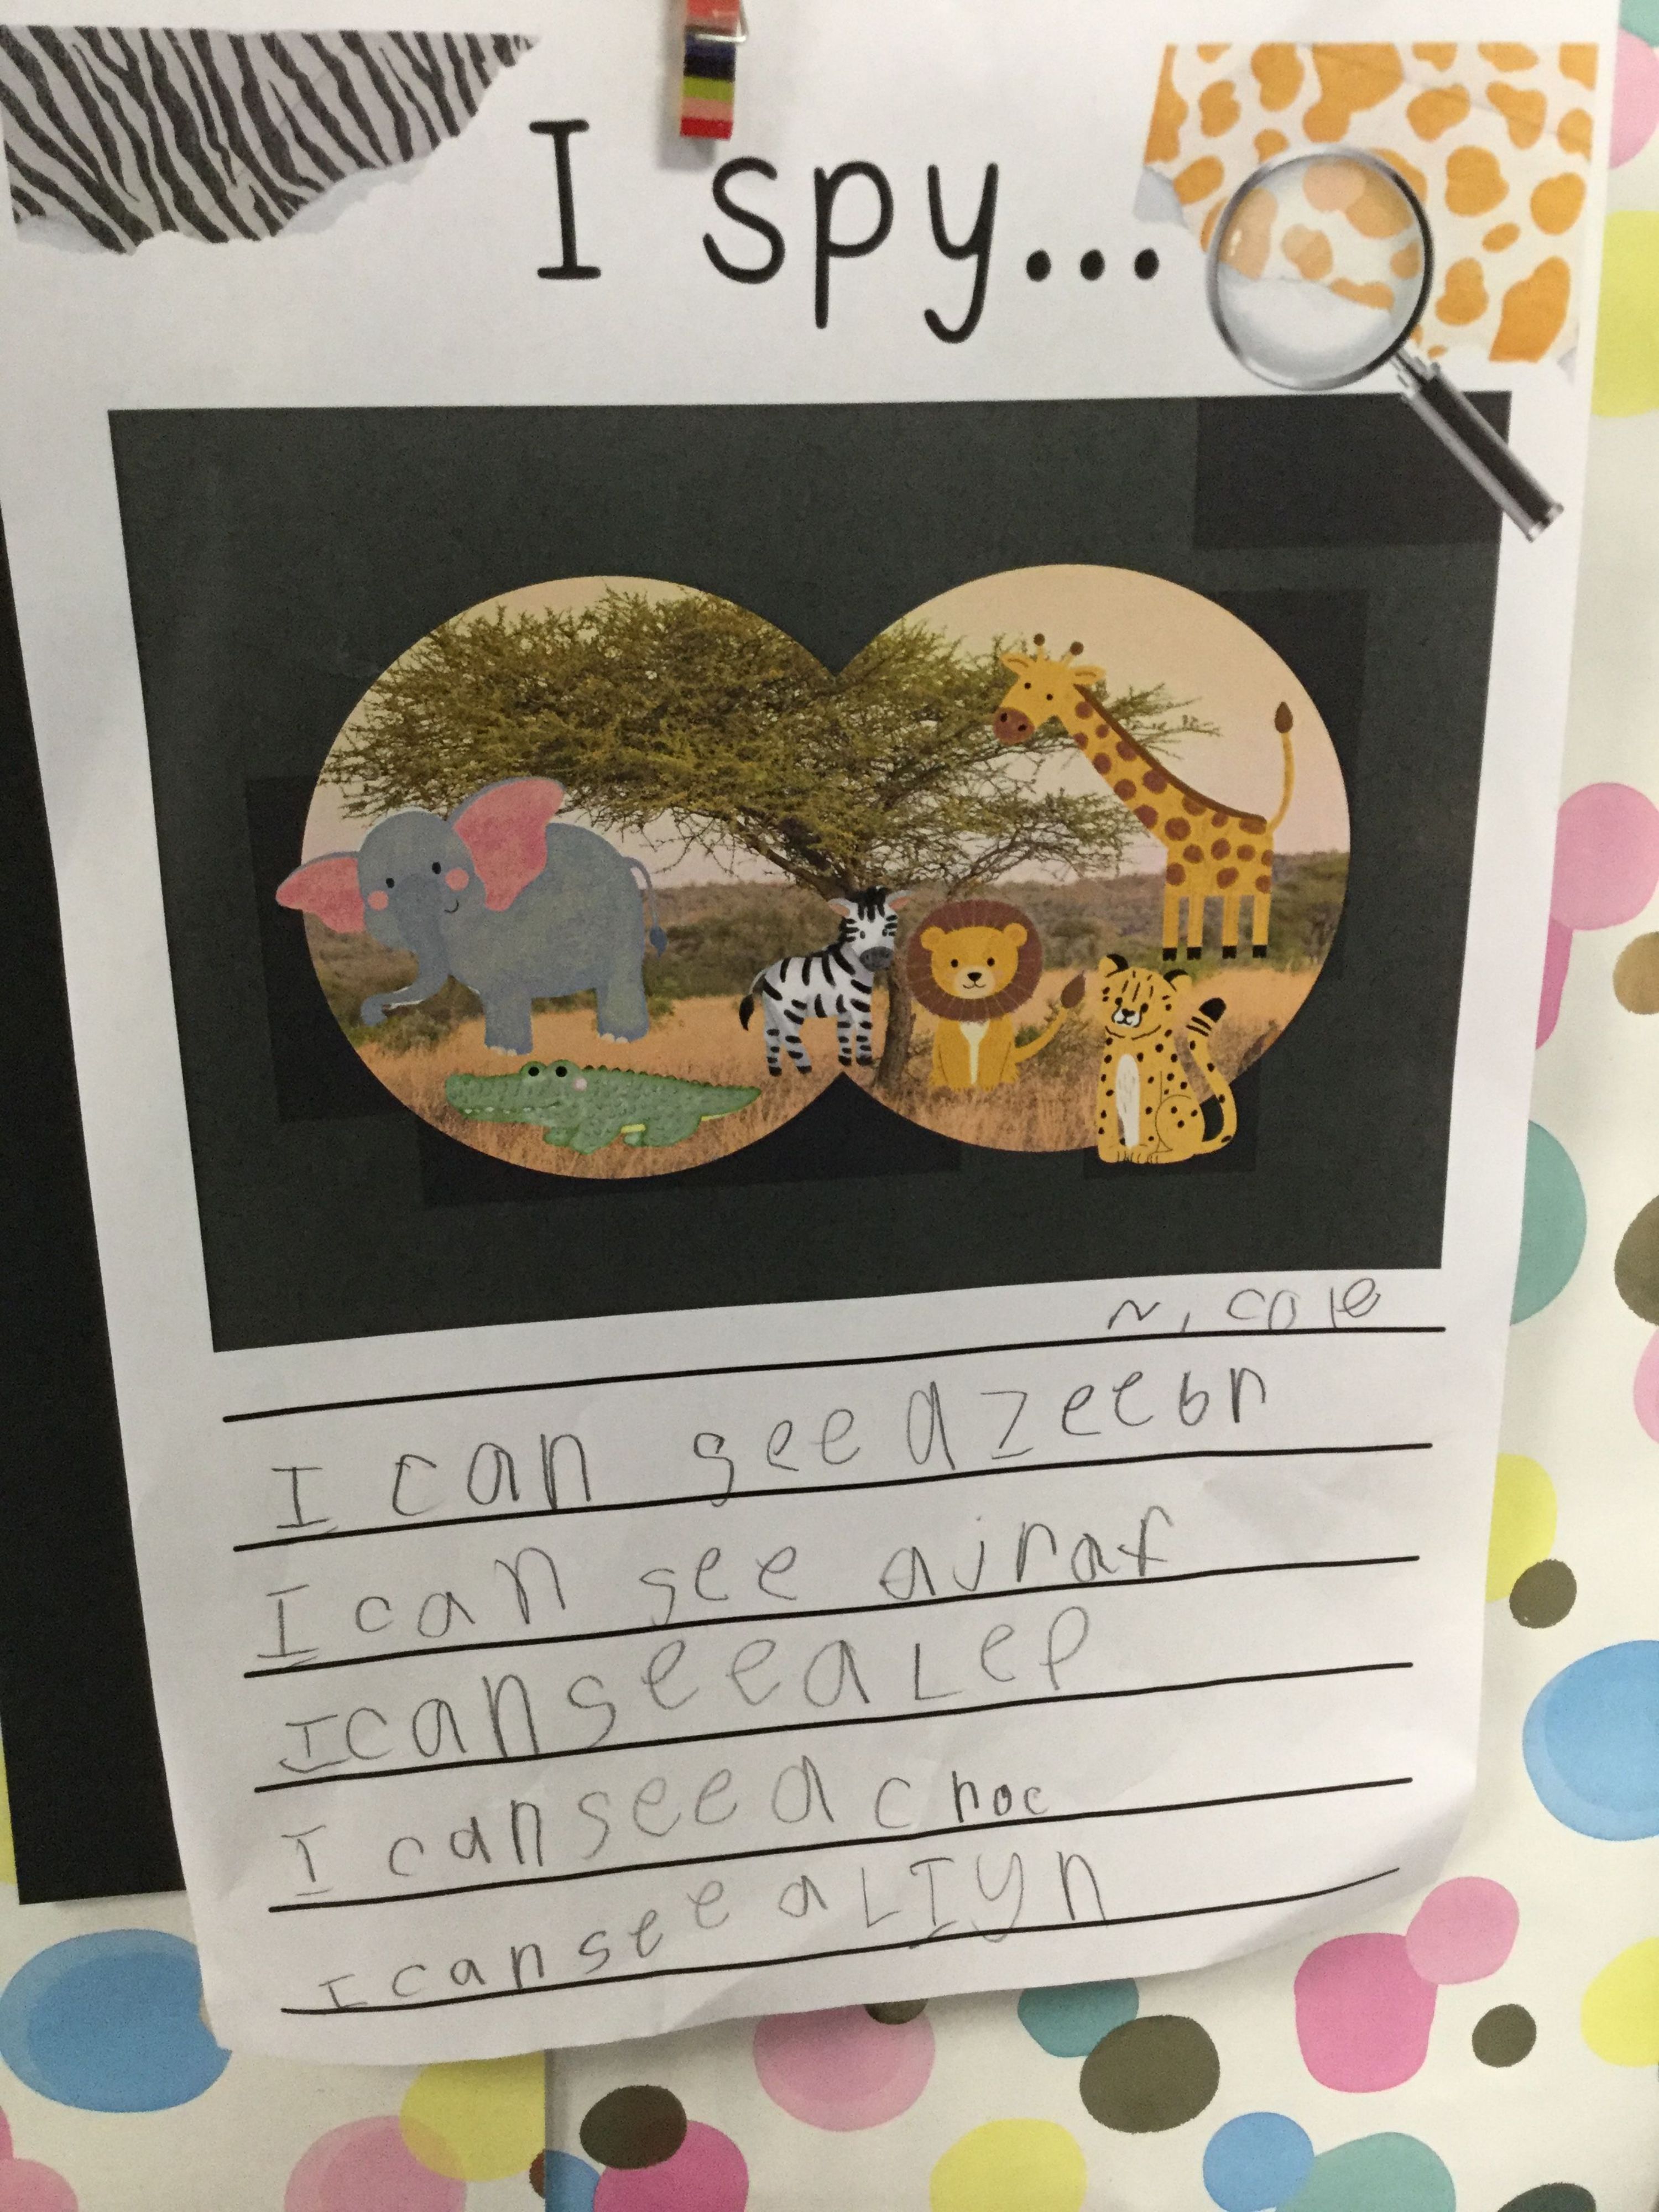 I spy...
Nicole
I can see a zeebr
I can see a jraf
I can see a Lep
I can see a croc
I can see a LIyn